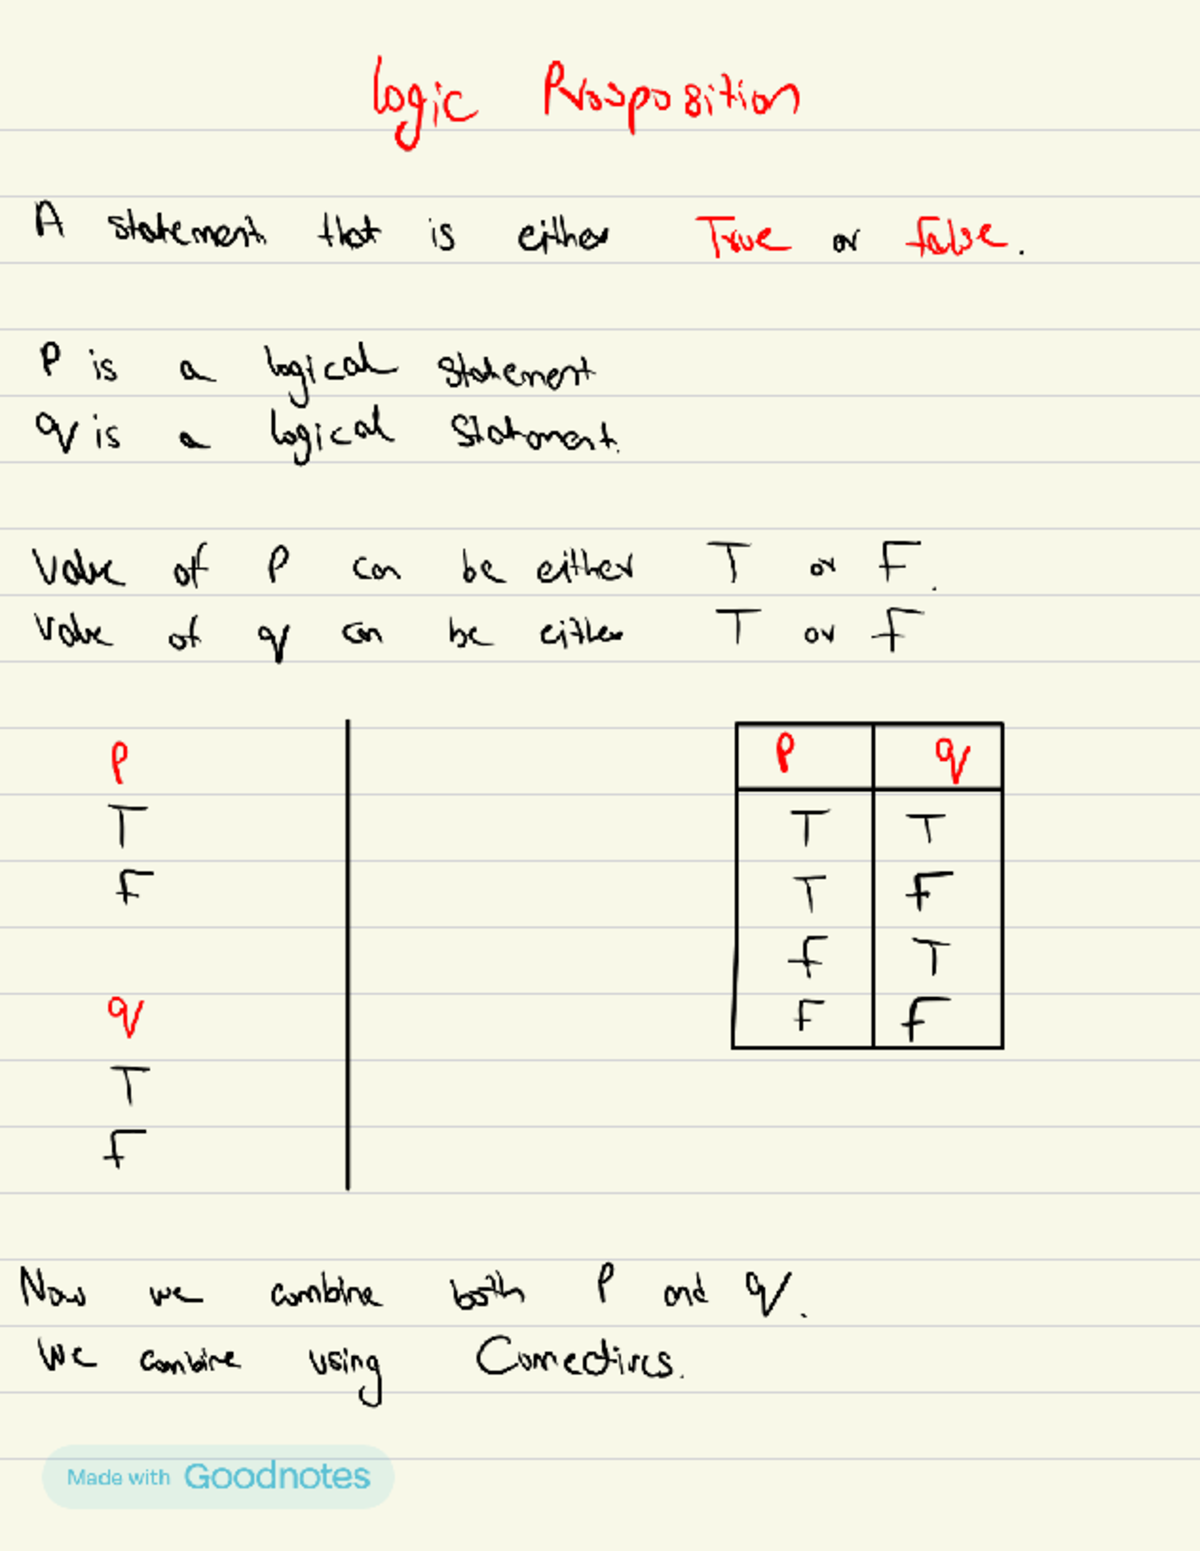 Logic Prosposition
A statement that is either True or false.
P is a logical statement
q is a logical statement.
Value of P can be either T or F.
Value of q can be either T or F
P
T
F
q
T
F
P q
T T
T F
F T
F F
Now we combine both P and q.
We combine using Connectives.
Made with Goodnotes